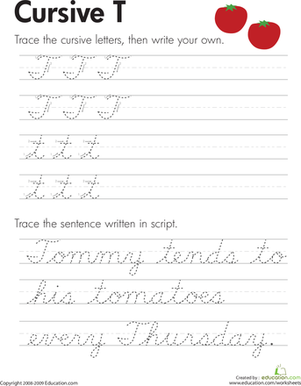 Cursive T
Trace the cursive letters, then write your own.
T T T
T T T
t t t
t t t
Trace the sentence written in script.
Tommy tends to
his tomatoes
every Thursday.
Created by: education.com
Copyright 2008-2009 Education.com
www.education.com/worksheets